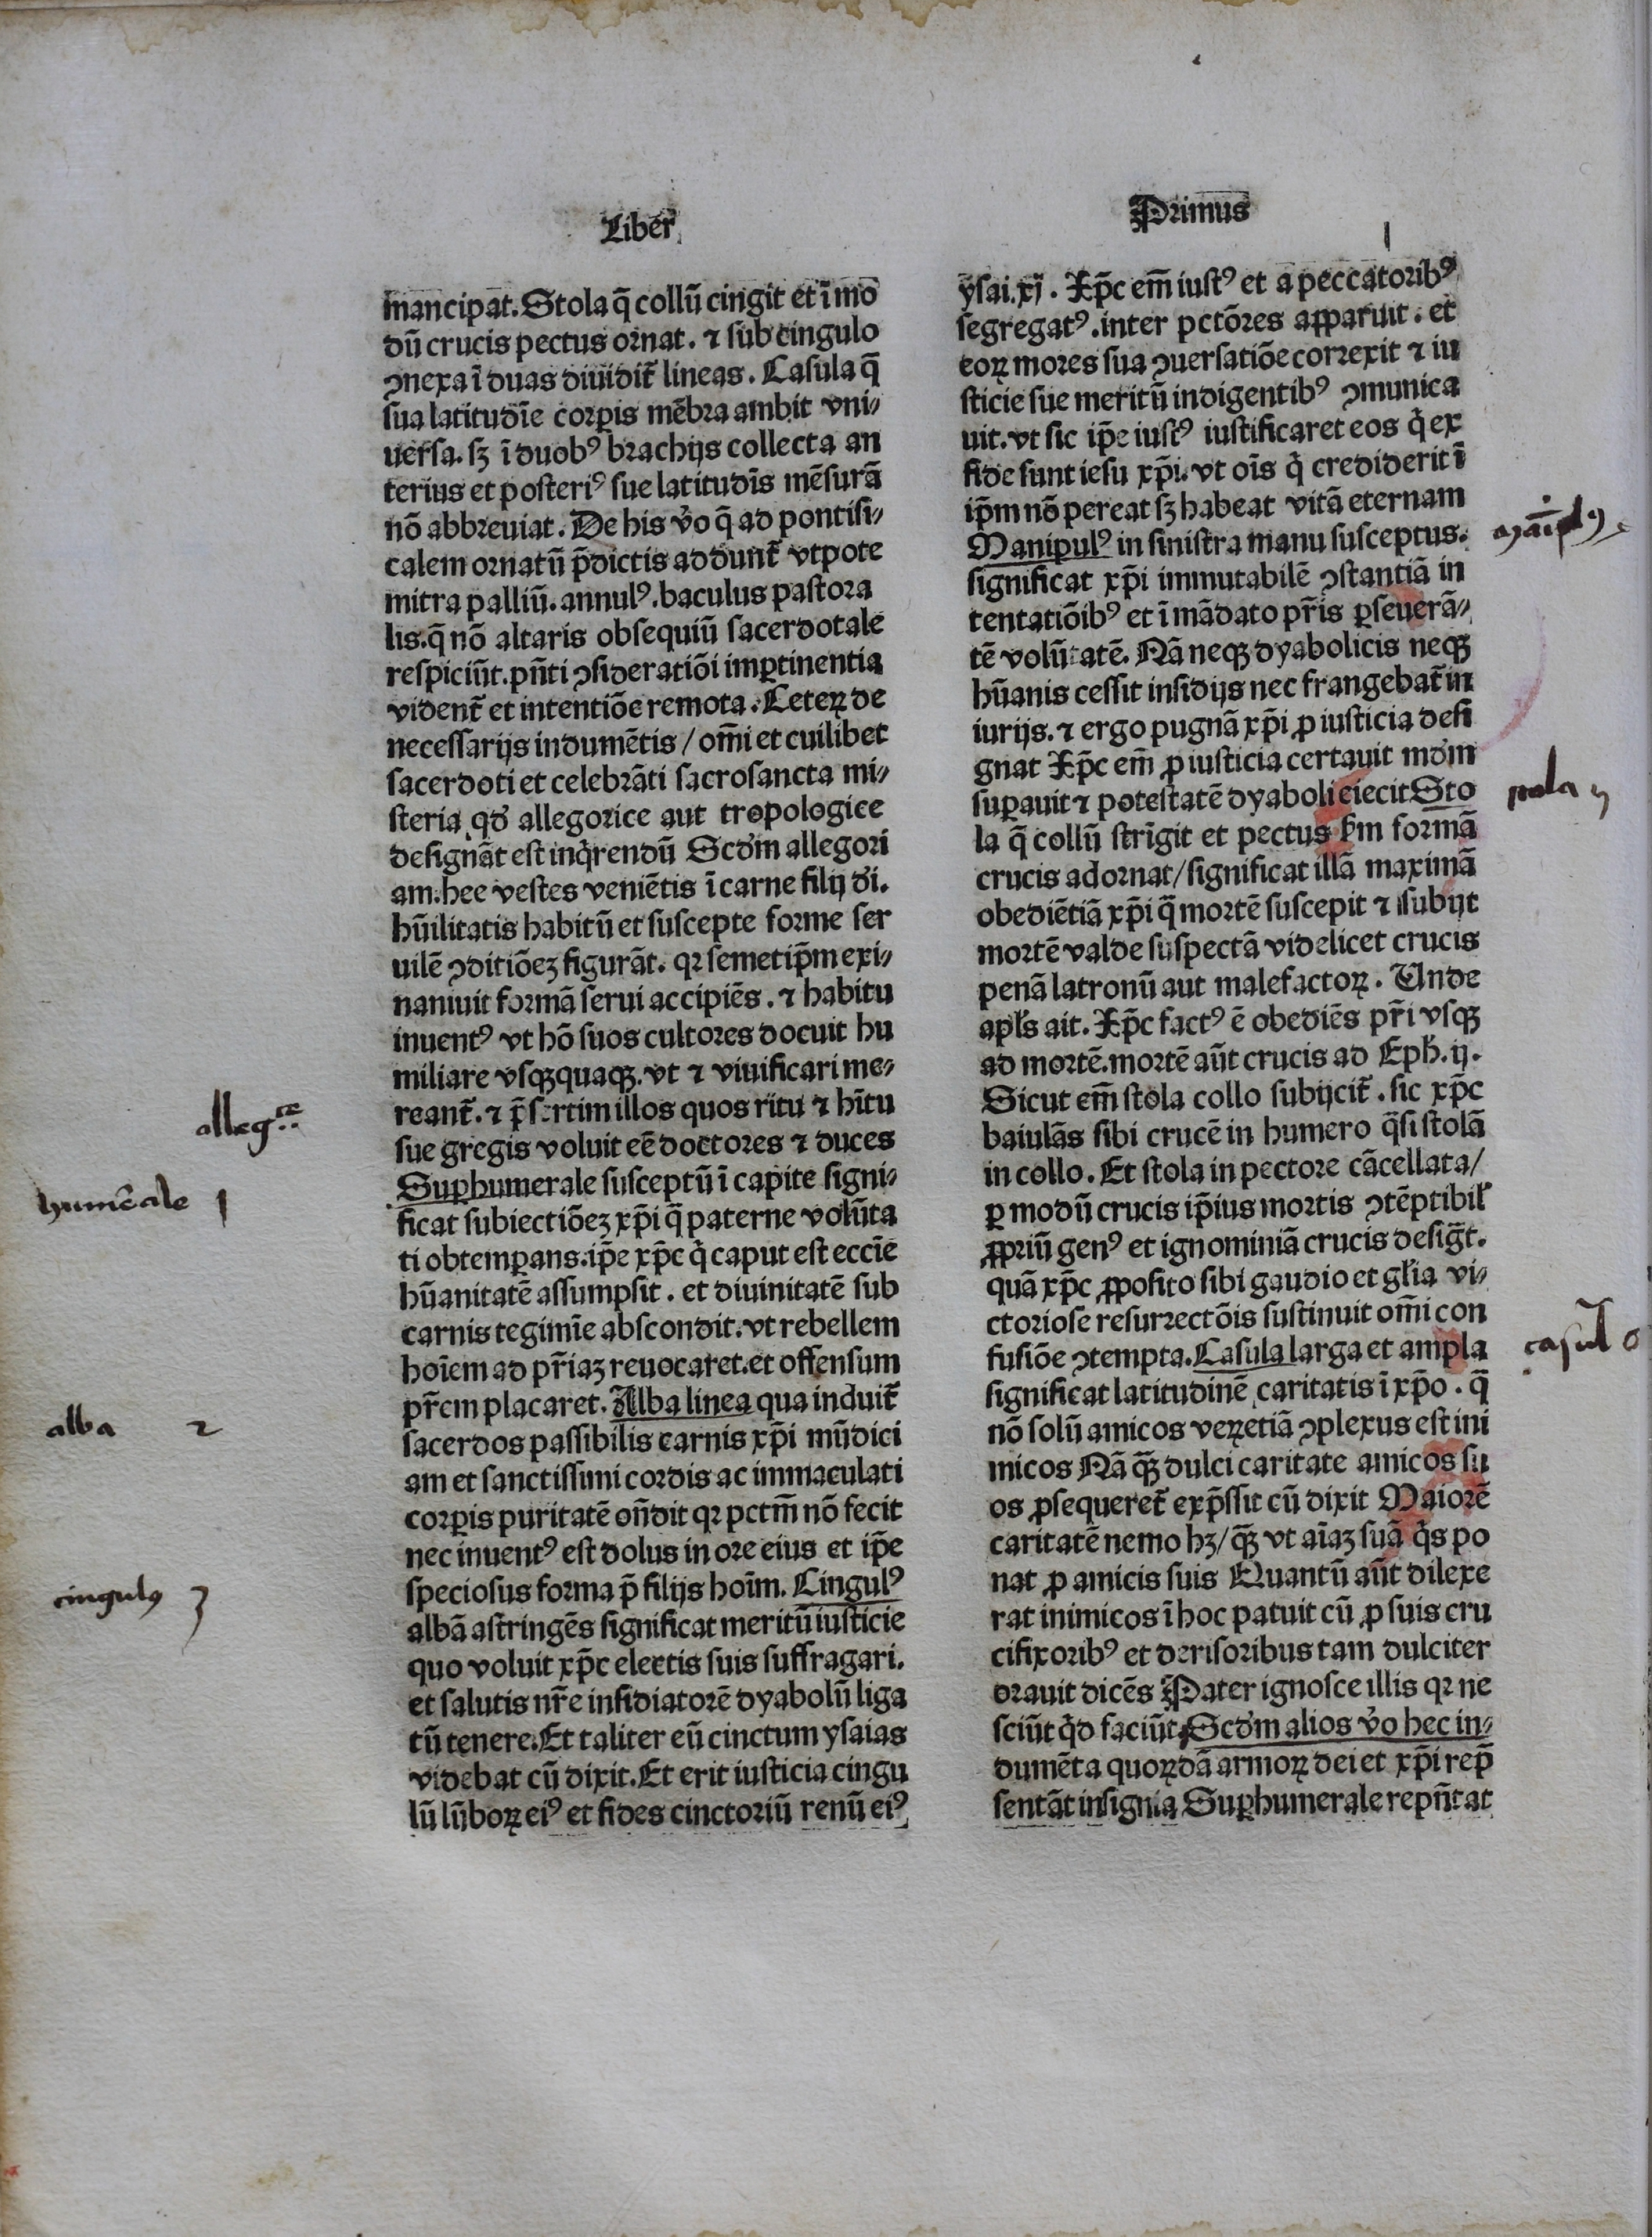 Liber
mancipat. Stola q̄ collū cingit et ī mo
dū crucis pectus ornat. ⁊ sub cingulo
ꝯnexa ī duas diuidit̄ lineas. Casula q̄
sua latitudīe corꝑis mēbra ambit vni⸗
uersa. sꝫ ī duobꝰ brachijs collecta an
terius et posteriꝰ sue latitudīs mēsurā
nō abbreuiat. De his v̓o q̄ ad pontifi⸗
calem ornatū p̄dictis addunt̄ vtpote
mitra palliū. annulꝰ. baculus pastora
lis. q̄ nō altaris obsequiū sacerdotale
respiciūt. pn̄ti ꝯsideratiōi imꝑtinentia
vident̄ et intentiōe remota. Ceteꝝ de
necessarijs indumētis / om̄i et cuilibet
sacerdoti et celebrāti sacrosancta mi⸗
steria qd̓ allegorice aut tropologice
designāt est inq̇rendū Scd̓m allegori
am. hee vestes veniētis ī carne filij d̓i.
hūilitatis habitū et suscepte forme ser
uilē ꝯditiōeꝫ figurāt. qꝛ semetip̄m exi⸗
naniuit formā serui accipiēs. ⁊ habitu
inuentꝰ vt hō suos cultores docuit hu
miliare vsqꝫquaqꝫ. vt ⁊ viuificari me⸗
reant̄. ⁊ p̄sertim illos quos ritu ⁊ hītu
sue gregis voluit eē doctores ⁊ duces
Suꝑhumerale susceptū ī capite signi⸗
ficat subiectiōeꝫ xp̄i q̄ paterne volūta
ti obtemꝑans. ip̄e xp̄c q̇ caput est eccīe
hūanitatē assumpsit. et diuinitatē sub
carnis tegimīe abscondit. vt rebellem
hoīem ad pr̄iaꝫ reuocaret. et offensum
pr̄em placaret. Alba linea qua induit̄
sacerdos passibilis carnis xp̄i mūdici
am et sanctissimi cordis ac immaculati
corꝑis puritatē on̄dit qꝛ pctm̄ nō fecit
nec inuentꝰ est dolus in ore eius et ip̄e
speciosus forma p̄ filijs hoīm. Cingulꝰ
albā astringēs significat meritū iusticie
quo voluit xp̄c electis suis suffragari.
et salutis nr̄e insidiatorē dyabolū liga
tū tenere. Et taliter eū cinctum ysaias
videbat cū dixit. Et erit iusticia cingu
lū lūboꝝ eiꝰ et fides cinctoriū renū eiꝰ
alleg..ce
humēale 1
alba 2
cingulꝰ 3
Primus
ysai. xj. Xp̄c em̄ iustꝰ et a peccatoribꝰ
segregatꝰ. inter pctōres apparuit. et
eoꝝ mores sua ꝯuersatiōe correxit ⁊ iu
sticie sue meritū indigentibꝰ ꝯmunica
uit. vt sic ip̄e iustꝰ iustificaret eos q̇ ex
fide sunt iesu xp̄i. vt oīs q̇ crediderit ī
ip̄m nō pereat sꝫ habeat vitā eternam
Manipulꝰ in sinistra manu susceptus.
significat xp̄i immutabilē ꝯstantiā in
tentatiōibꝰ et ī mādato pr̄is ꝑseuerā⸗
tē volūtatē. Nā neqꝫ dyabolicis neqꝫ
hūanis cessit insidijs nec frangebat̄ in
iurijs. ⁊ ergo pugnā xp̄i ꝓ iusticia desi
gnat Xp̄c em̄ ꝓ iusticia certauit md̓m
suꝑauit ⁊ potestatē dyaboli eiecit Sto
la q̄ collū strīgit et pectus ẜm formā
crucis adornat / significat illā maximā
obediētiā xp̄i q̄ mortē suscepit ⁊ subijt
mortē valde suspectā videlicet crucis
penā latronū aut malefactoꝝ. Unde
apl̓s ait. Xp̄c factꝰ ē obediēs pr̄i vsqꝫ
ad mortē. mortē aūt crucis ad Eph̓. ij.
Sicut em̄ stola collo subijcit̄. sic xp̄c
baiulās sibi crucē in humero q̄si stolā
in collo. Et stola in pectore cācellata /
ꝑ modū crucis ip̄ius mortis ꝯtēptibil̓
ꝓpriū genꝰ et ignominiā crucis desigt̄.
quā xp̄c ꝓposito sibi gaudio et gl̓ia vi⸗
ctoriose resurrectōis sustinuit om̄i con
fusiōe ꝯtempta. Casula larga et ampla
significat latitudinē caritatis ī xp̄o. q̄
nō solū amicos veꝝetiā ꝯplexus est ini
micos Nā qꝫ̄ dulci caritate amicos su
os ꝓsequeret̄ exp̄ssit cū dixit Maiorē
caritatē nemo hꝫ / qꝫ̄ vt aīaꝫ suā q̇s po
nat ꝓ amicis suis Quantū aūt dilexe
rat inimicos ī hoc patuit cū ꝓ suis cru
cifixoribꝰ et derisoribus tam dulciter
orauit dicēs Pater ignosce illis qꝛ ne
sciūt q̇d faciūt Scd̓m alios v̓o hec in⸗
dumēta quoꝝdā armoꝝ dei et xp̄i rep̄
sentāt insignia Suꝑhumerale repn̄tat